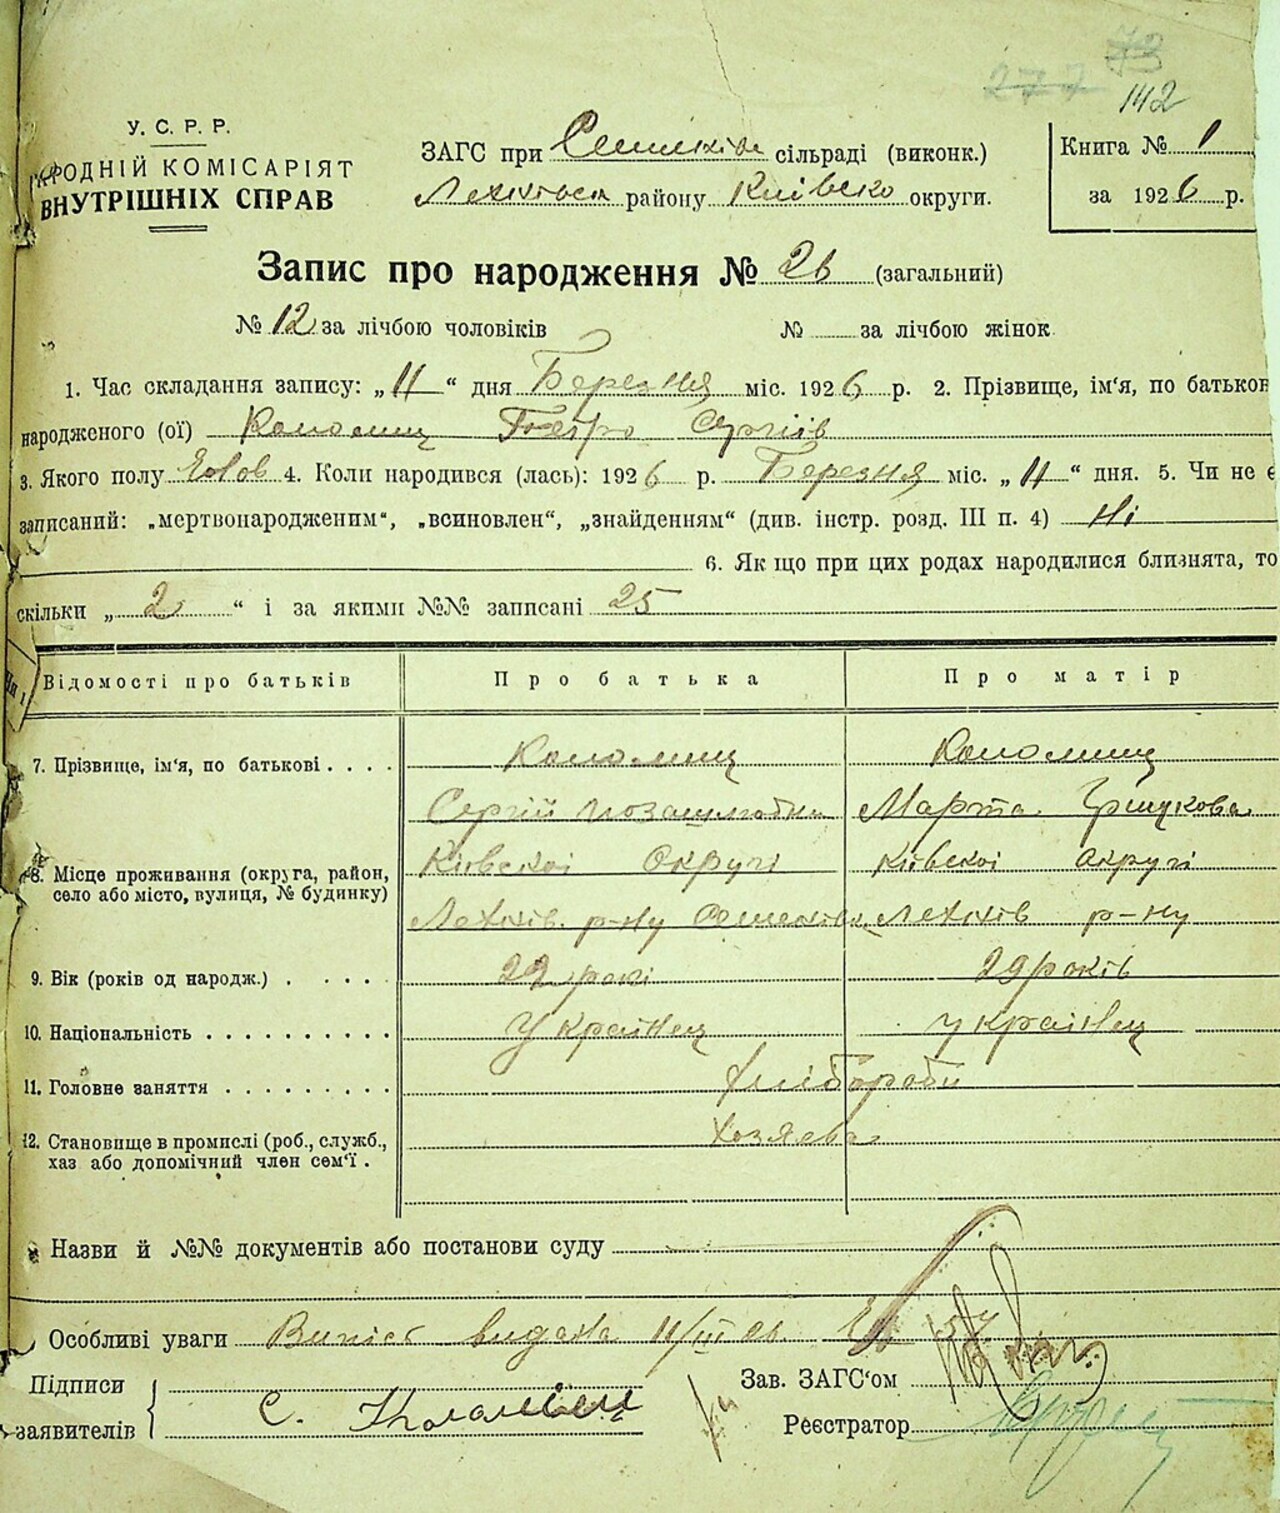 73
277
142
У. С. Р. Р.
РОДНІЙ КОМІСАРІЯТ
ВНУТРІШНІХ СПРАВ
ЗАГС при сільраді (виконк.)
району Київсько округи.
Книга № 1
за 1926 р.
Запис про народження № 26 (загальний)
№ 12 за лічбою чоловіків № за лічбою жінок
1. Час складання запису: „ 11 “ дня Березня міс. 1926 р. 2. Прізвище, ім'я, по батьков
народженого (ої) Коломиц Петро Сергіїв
3. Якого полу 4. Коли народився (лась): 1926 р. Березня міс. „ 11 “ дня. 5. Чи не є
записаний: „мертвонародженим“, „всиновлен“, „знайденням“ (див. інстр. розд. III п. 4) Ні
6. Як що при цих родах народилися близнята, то
скільки „ 2 “ і за якими №№ записані 25
Відомості про батьків Про батька Про матір
7. Прізвище, ім'я, по батькові . . . . Коломиц Коломиц
Сергій Марта
8. Місце проживання (округа, район, Київскої Округі Київскої Округі
село або місто, вулиця, № будинку)
р-ну р-ну
9. Вік (років од народж.) . . . . . 22 рокі 29 років
10. Національність . . . . . . . . . . Українец українец
11. Головне заняття . . . . . . . . . Хлібороби
12. Становище в промислі (роб., служб., Хозяева
хаз або допомічний член сем'ї .
Назви й №№ документів або постанови суду
Особливі уваги видана 11/III 26
Підписи
заявителів С. Коломієц
Зав. ЗАГС'ом
Реєстратор